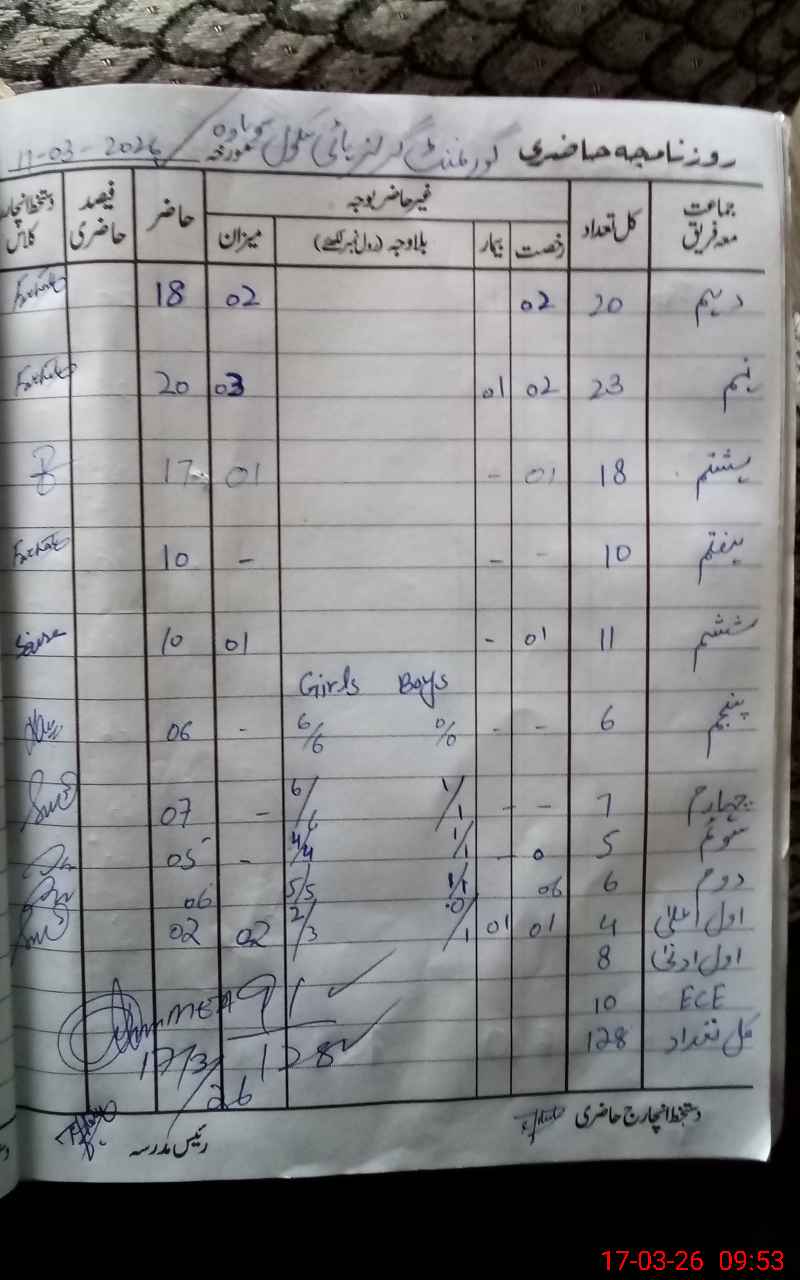 روزنامچہ حاضری گورنمنٹ گرلز ہائی سکول مورخہ 17-03-2026
جماعت معہ فریق کل تعداد غیر حاضر بوجہ حاضر فیصد حاضری دستخط انچارج کلاس
رخصت بیمار بلاوجہ (رول نمبر لکھیے) میزان
دہم 20 02 02 18
نہم 23 02 01 03 20
ہشتم 18 01 - 01 17
ہفتم 10 - - - 10
ششم 11 01 - 01 10
Girls Boys
پنجم 6 - - 0/0 6/6 - 06
چہارم 7 - - 1/1 6/6 - 07
سوئم 5 0 - 1/1 4/4 - 05
دوم 6 06 1/1 5/5 06
اول اعلیٰ 4 01 01 0/1 2/3 02 02
اول ادنیٰ 8
ECE 10 91
کل تعداد 128 128
17/3/26
دستخط انچارج حاضری رئیس مدرسہ
17-03-26 09:53